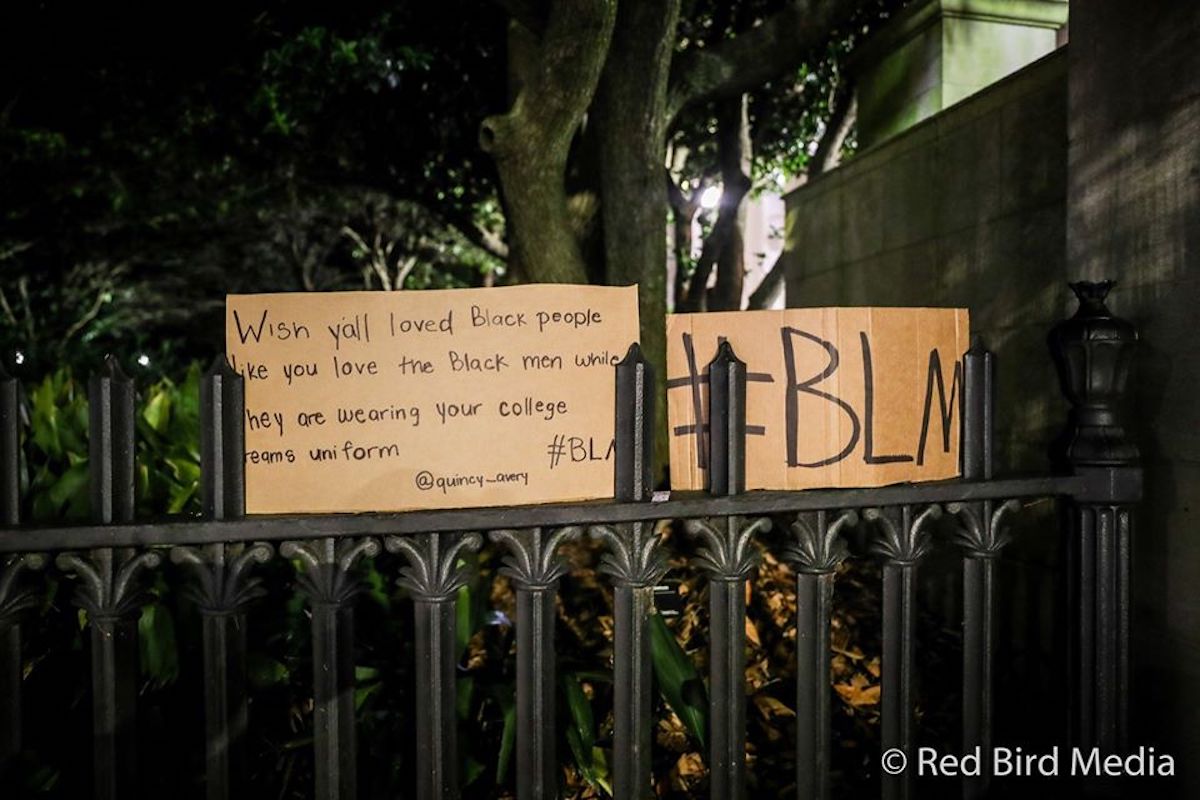 Wish y'all loved Black people
like you love the Black men while
hey are wearing your college
eams uniform
#BLM
@quincy_avery
#BLM
© Red Bird Media